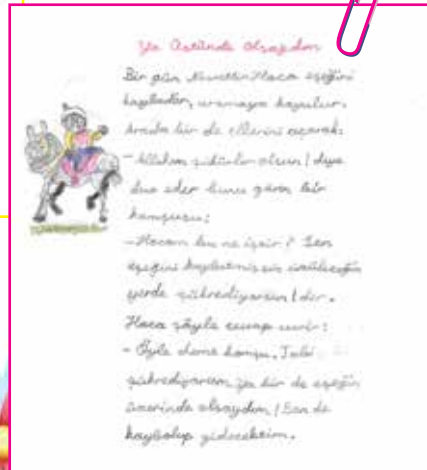 Ya Üstünde Olsaydım
Bir gün Nasrettin Hoca eşeğini
kaybeder, aramaya koyulur.
Arada bir de ellerini açarak:
- Allahım şükürler olsun! diye
dua eder bunu gören bir
komşusu:
- Hocam bu ne iştir? Sen
eşeğini kaybetmişsin üzüleceğin
yerde şükrediyorsun! der.
Hoca şöyle cevap verir:
- Öyle deme komşu. Tabi
şükrediyorum, ya bir de eşeğin
üzerinde olsaydım! Ben de
kaybolup gidecektim.